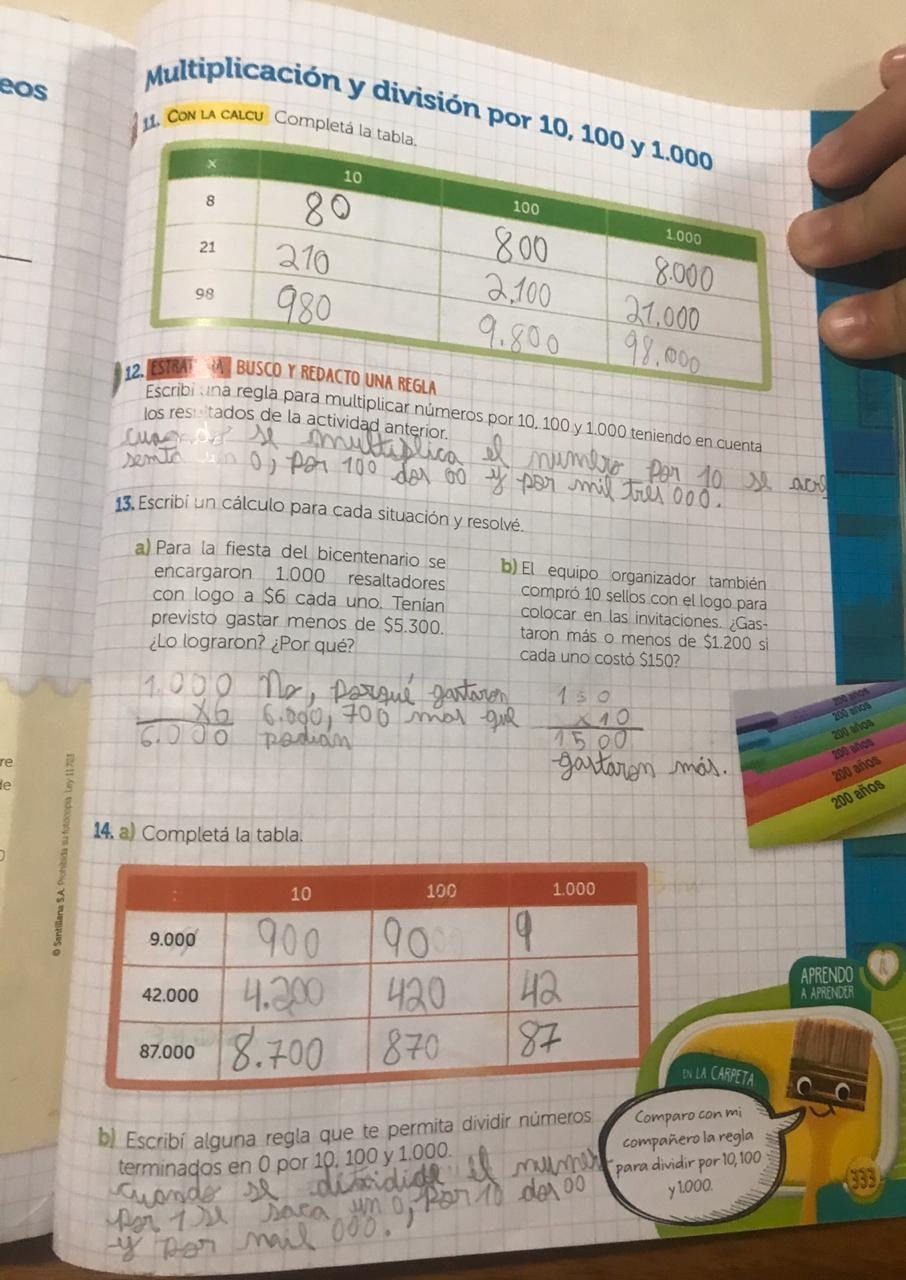 eos
Multiplicación y división por 10, 100 y 1.000
11. CON LA CALCU Completá la tabla.
x 10 100 1.000
8 80 800 8.000
21 210 2.100 21.000
98 980 9.800 98.000
12. BUSCO Y REDACTO UNA REGLA
Escribí una regla para multiplicar números por 10, 100 y 1.000 teniendo en cuenta
los resultados de la actividad anterior.
cuando se multiplica el numero por 10 se acre
semta un 0, por 100 dos 00 y por mil tres 000.
13. Escribí un cálculo para cada situación y resolvé.
a) Para la fiesta del bicentenario se
encargaron 1.000 resaltadores
con logo a $6 cada uno. Tenían
previsto gastar menos de $5.300.
¿Lo lograron? ¿Por qué?
1.000 No, porqué gastaron
x6 6.000, 700 mas que
6.000 podian
b) El equipo organizador también
compró 10 sellos con el logo para
colocar en las invitaciones. ¿Gas-
taron más o menos de $1.200 si
cada uno costó $150?
150
x10
1500
gastaron más.
200 años
200 años
200 años
200 años
200 años
200 años
re
de
© Santillana S.A. Prohibida su fotocopia. Ley 11.723
14. a) Completá la tabla.
: 10 100 1.000
9.000 900 90 9
42.000 4.200 420 42
87.000 8.700 870 87
b) Escribí alguna regla que te permita dividir números
terminados en 0 por 10, 100 y 1.000.
cuando se el numer
por 1 se saca un 0, por 10 dos 00
y por mil 000.
APRENDO
A APRENDER
EN LA CARPETA
Comparo con mi
compañero la regla
para dividir por 10, 100
y 1.000.
333